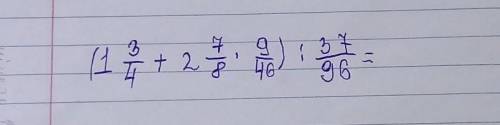 (1 3/4 + 2 7/8 · 9/46) : 37/96 =